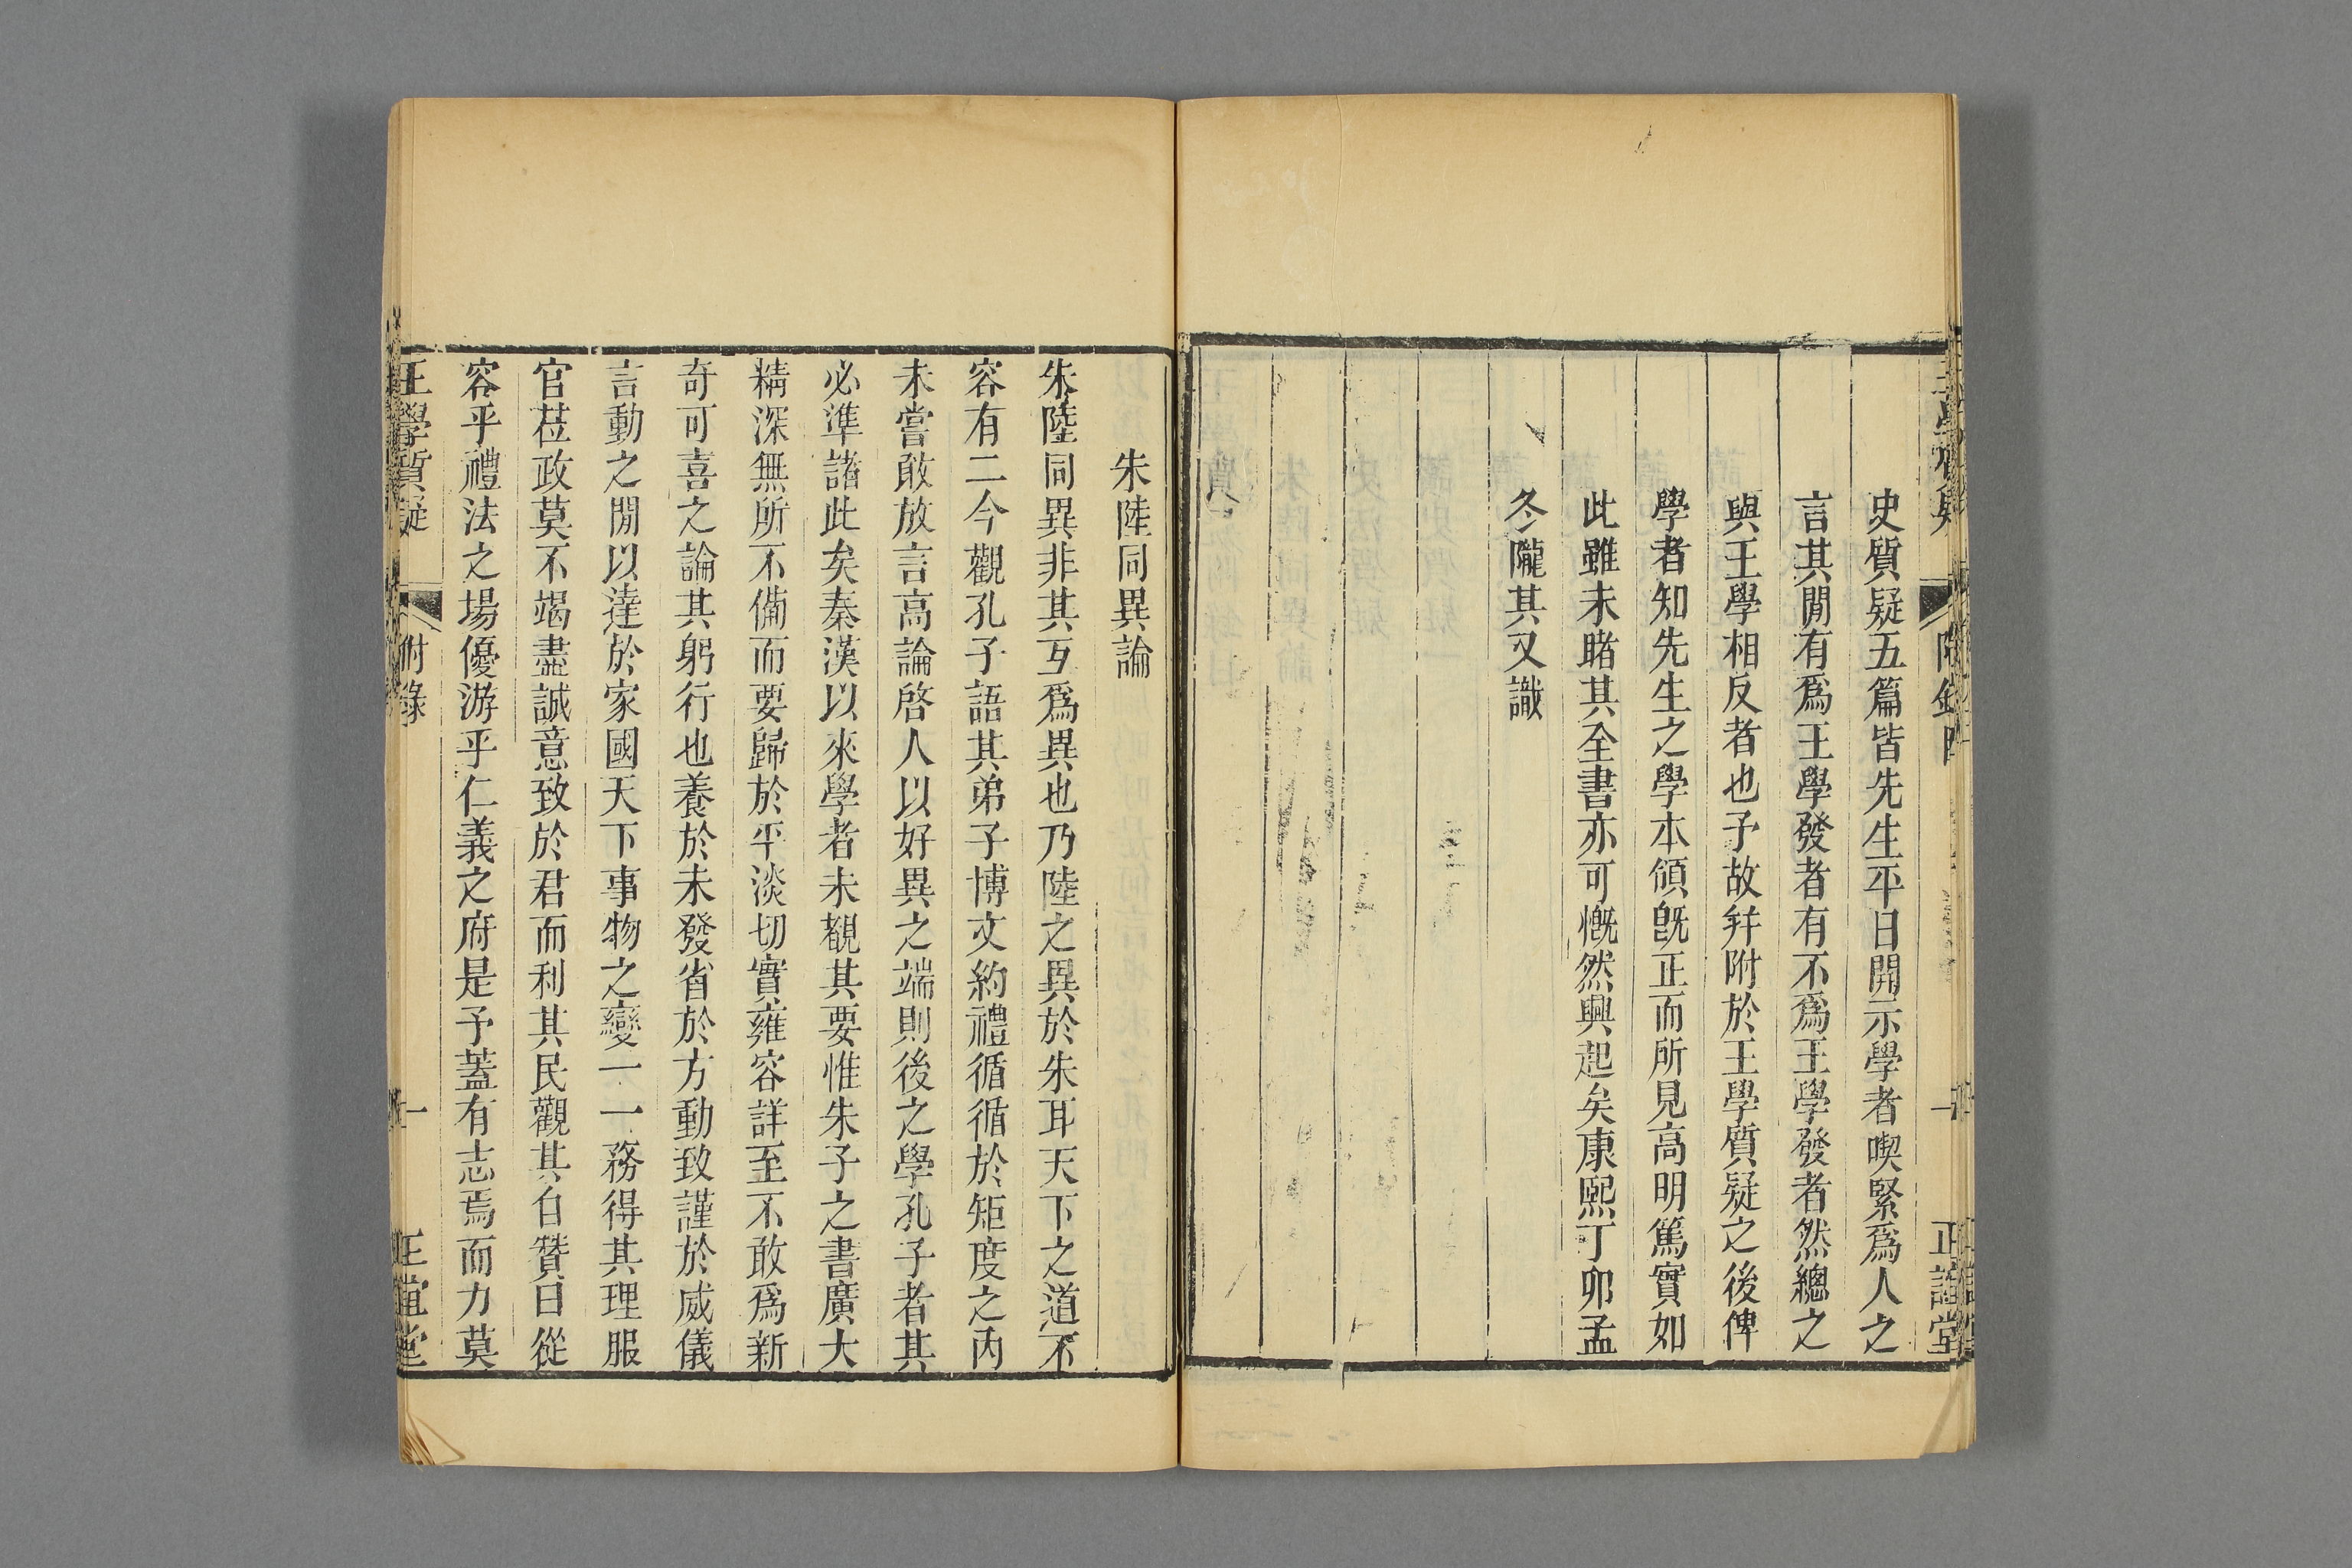 史質疑五篇皆先生平日開示學者喫緊爲人之
言其閒有爲王學發者有不爲王學發者然總之
與王學相反者也予故幷附於王學質疑之後俾
學者知先生之學本領旣正而所見高明篤實如
此雖未睹其全書亦可慨然興起矣康熙丁卯孟
冬隴其又識
朱陸同異論
朱陸同異非其互爲異也乃陸之異於朱耳天下之道不
容有二今觀孔子語其弟子博文約禮循循於矩度之內
未嘗敢放言高論啓人以好異之端則後之學孔子者其
必準諸此矣秦漢以來學者未覩其要惟朱子之書廣大
精深無所不備而要歸於平淡切實雍容詳至不敢爲新
奇可喜之論其躬行也養於未發省於方動致謹於威儀
言動之閒以達於家國天下事物之變一一務得其理服
官莅政莫不竭盡誠意致於君而利其民觀其自贊曰從
容乎禮法之場優游乎仁義之府是予蓋有志焉而力莫
王學質疑
附錄
一
正誼堂